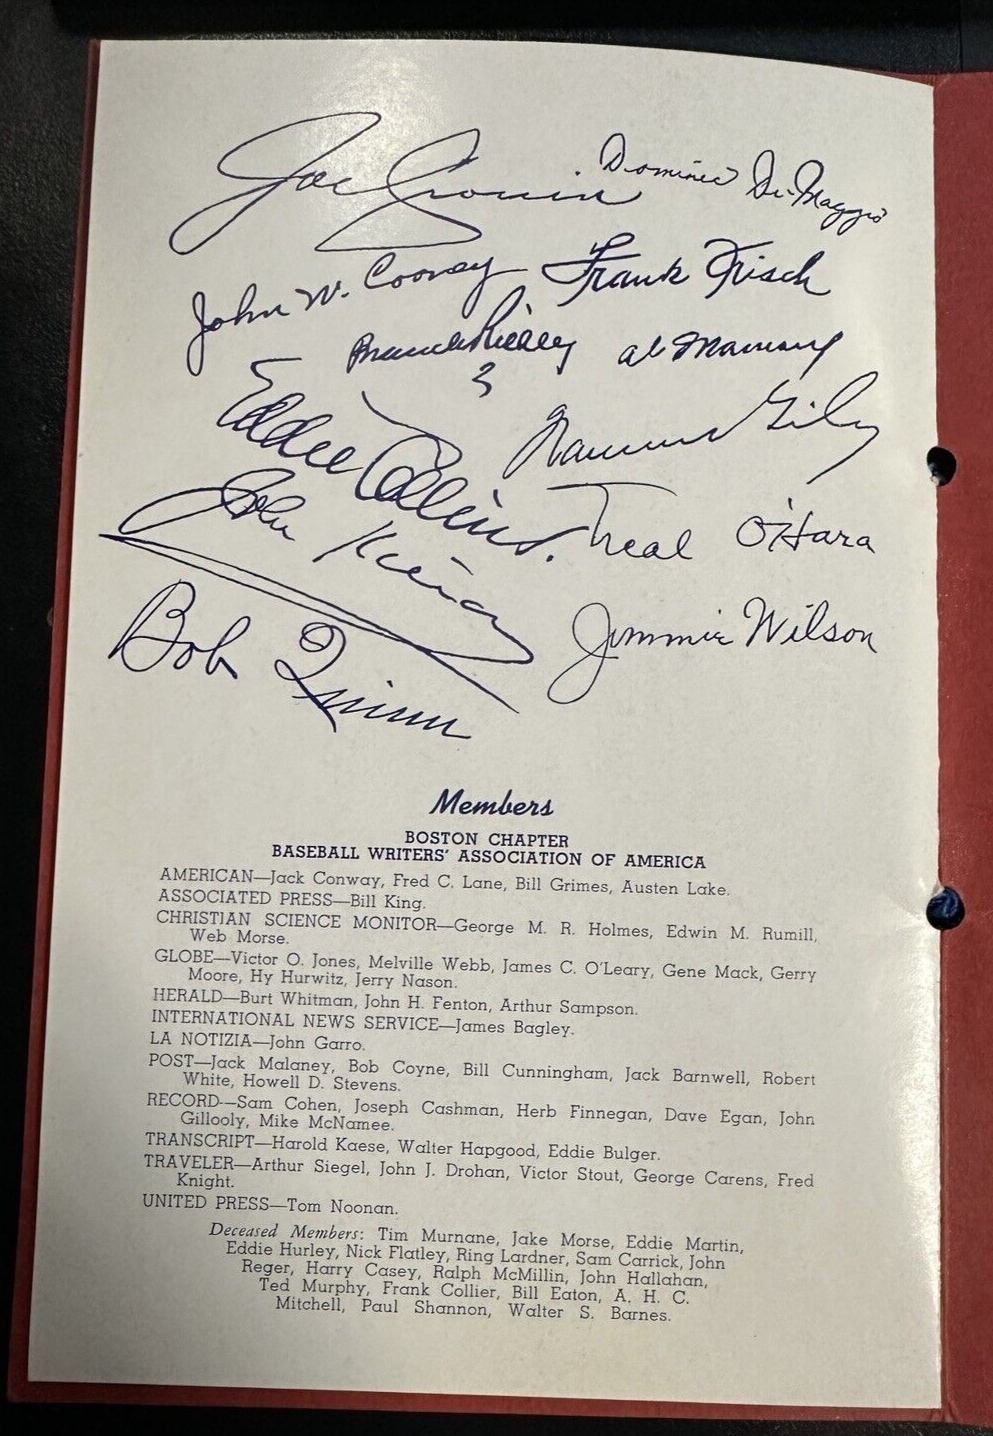 Joe Cronin
Dominic Di Maggio
John W. Cooney
Frank Frisch
Branch Rickey
al
Eddie Collins.
John
Neal O'Hara
Jimmie Wilson
Bob Quinn
Members
BOSTON CHAPTER
BASEBALL WRITERS' ASSOCIATION OF AMERICA
AMERICAN—Jack Conway, Fred C. Lane, Bill Grimes, Austen Lake.
ASSOCIATED PRESS—Bill King.
CHRISTIAN SCIENCE MONITOR—George M. R. Holmes, Edwin M. Rumill,
Web Morse.
GLOBE—Victor O. Jones, Melville Webb, James C. O'Leary, Gene Mack, Gerry
Moore, Hy Hurwitz, Jerry Nason.
HERALD—Burt Whitman, John H. Fenton, Arthur Sampson.
INTERNATIONAL NEWS SERVICE—James Bagley.
LA NOTIZIA—John Garro.
POST—Jack Malaney, Bob Coyne, Bill Cunningham, Jack Barnwell, Robert
White, Howell D. Stevens.
RECORD—Sam Cohen, Joseph Cashman, Herb Finnegan, Dave Egan, John
Gillooly, Mike McNamee.
TRANSCRIPT—Harold Kaese, Walter Hapgood, Eddie Bulger.
TRAVELER—Arthur Siegel, John J. Drohan, Victor Stout, George Carens, Fred
Knight.
UNITED PRESS—Tom Noonan.
Deceased Members: Tim Murnane, Jake Morse, Eddie Martin,
Eddie Hurley, Nick Flatley, Ring Lardner, Sam Carrick, John
Reger, Harry Casey, Ralph McMillin, John Hallahan,
Ted Murphy, Frank Collier, Bill Eaton, A. H. C.
Mitchell, Paul Shannon, Walter S. Barnes.